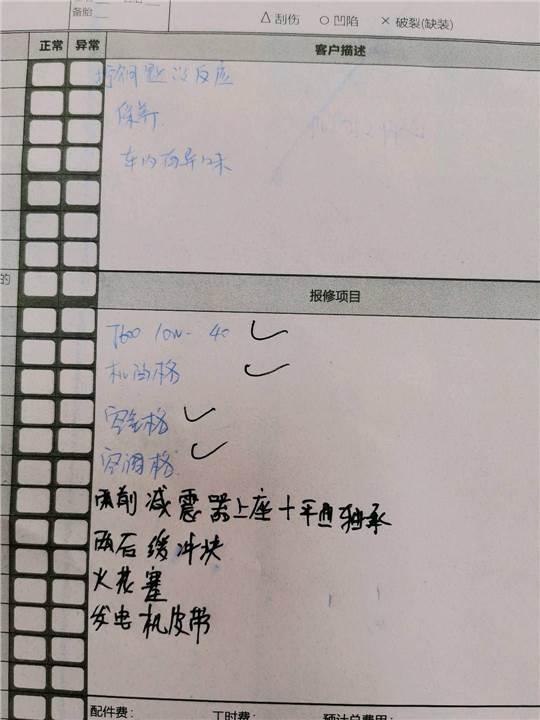 备胎
△刮伤 ○凹陷 ×破裂(缺装)
正常 异常 客户描述
钥匙没反应
保养
车内有异味
的
报修项目
10W-40 ✓
机油格 ✓
空气格 ✓
空调格 ✓
两前减震器上座+平面轴承
两后缓冲块
火花塞
发电机皮带
配件费: 工时费: 预计总费用: